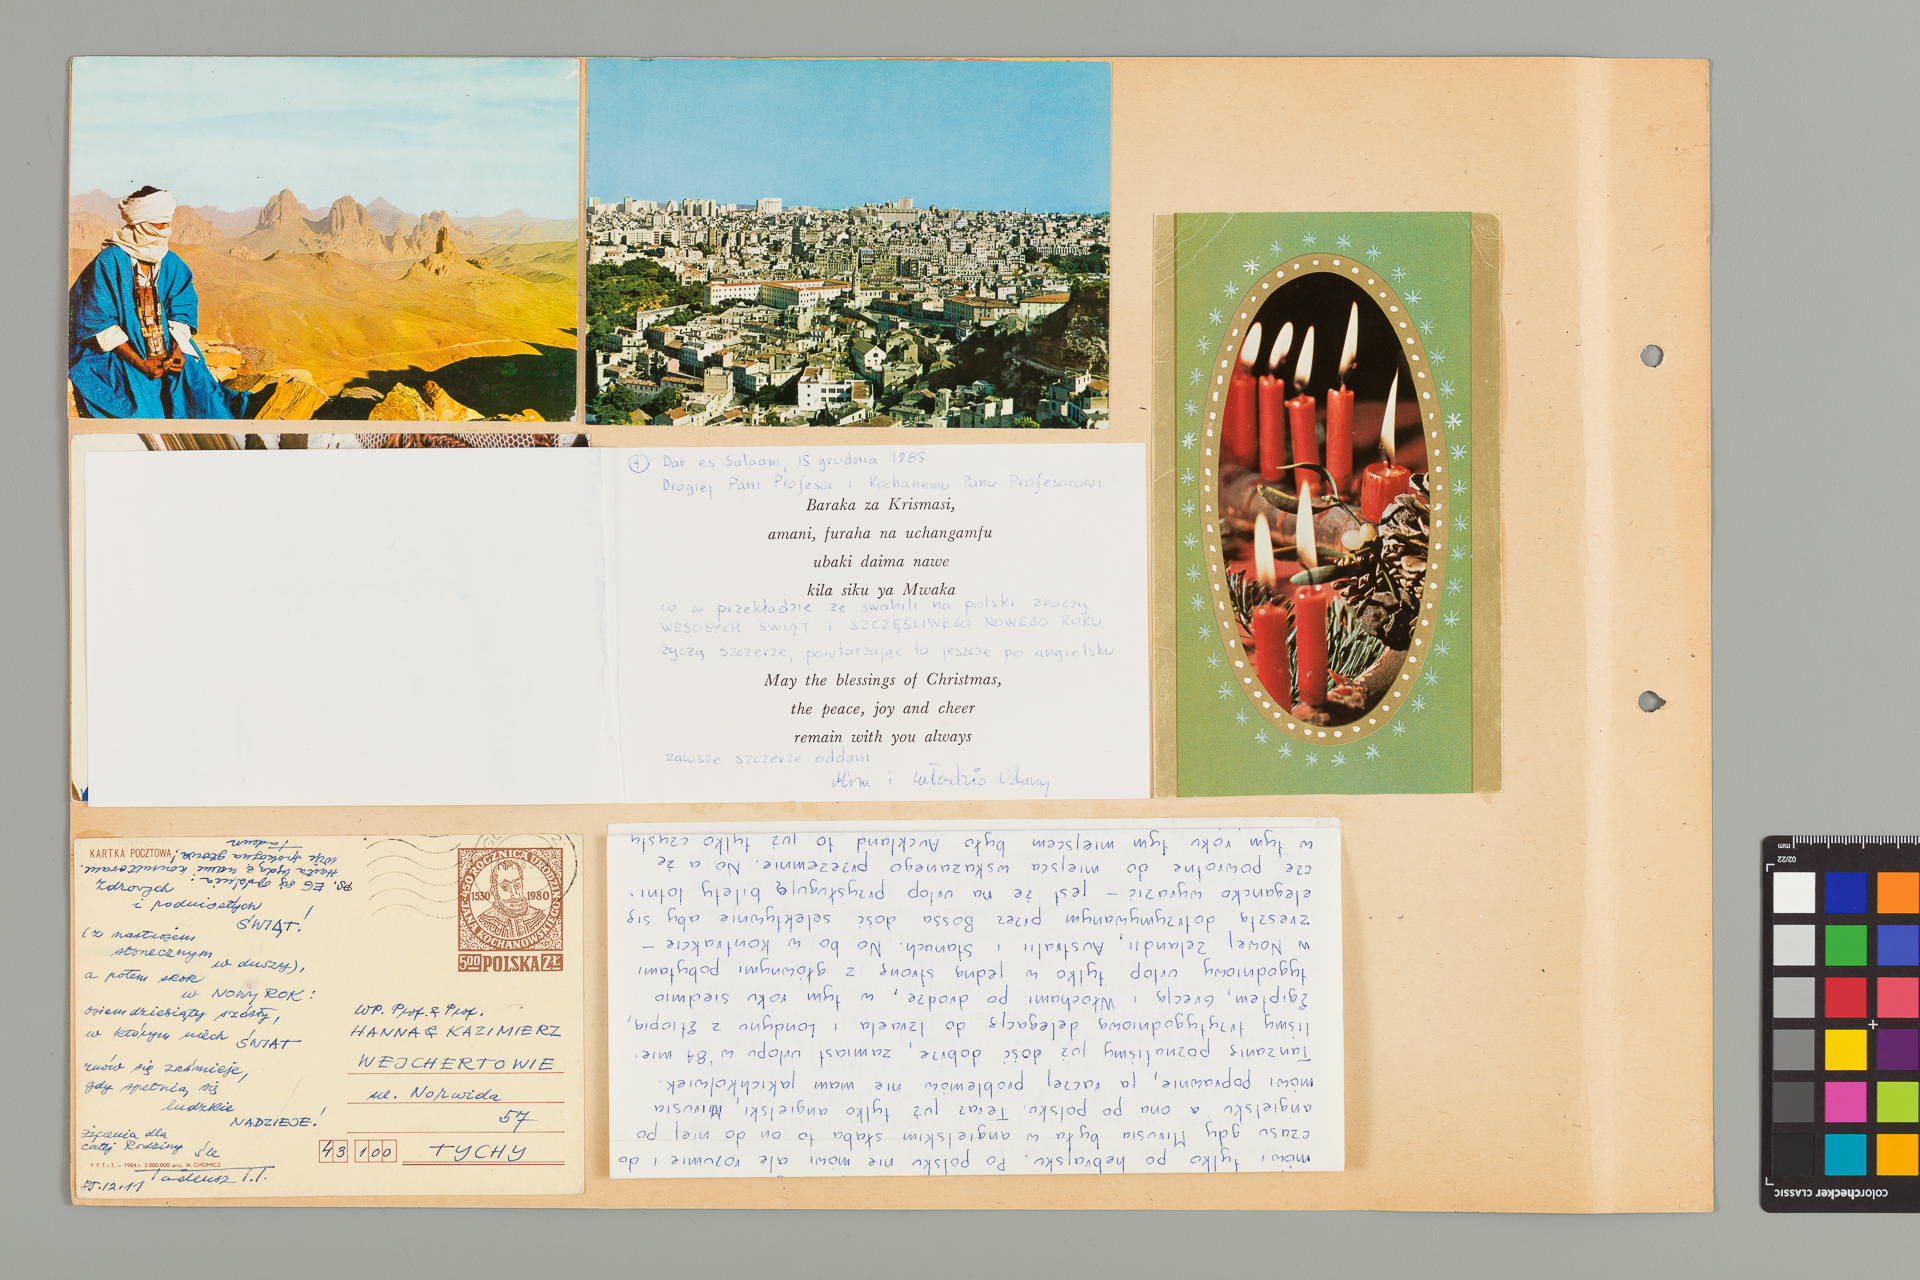 ④ Dar es Salaam, 15 grudnia 1985
Drogiej Pani Profesor i Kochanemu Panu Profesorowi
Baraka za Krismasi,
amani, furaha na uchangamfu
ubaki daima nawe
kila siku ya Mwaka
co w przekładzie ze swahili na polski znaczy
WESOŁYCH ŚWIĄT i SZCZĘŚLIWEGO NOWEGO ROKU
życzą szczerze, powtarzając to jeszcze po angielsku
May the blessings of Christmas,
the peace, joy and cheer
remain with you always
zawsze szczerze oddani
i Włodzio
KARTKA POCZTOWA
Zdrowych
i podniosłych
ŚWIĄT!
(z nastrojem
słonecznym
w duszy),
a potem skok
w NOWY ROK:
osiemdziesiąty szósty,
w którym niech ŚWIAT
znów się zaśmieje,
gdy spełnią się
ludzkie
NADZIEJE!
Życzenia dla
całej Rodziny śle
P.P.T.i T. – 1984 r. 2 000 000 proj. W. CHOMICZ
Tadeusz T.T.
85.12.11
PS. EG się
Tadeusz
450 ROCZNICA URODZIN
JANA KOCHANOWSKIEGO
1530 1980
500 POLSKA ZŁ
WP. Prof. & Prof.
HANNA & KAZIMIERZ
WEJCHERTOWIE
ul. Norwida
57
43 100 TYCHY
mówi tylko po hebrajsku. Po polsku nie mówi ale rozumie i do
czasu gdy Mirusia była w angielskim słaba to on do niej po
angielsku a ona po polsku. Teraz już tylko angielski, Mirusia
mówi poprawnie, ja raczej problemów nie mam jakichkolwiek.
Tanzanię poznaliśmy już dość dobrze, zamiast urlopu w '84 mie-
liśmy trzytygodniową delegację do Izraela i Londynu z Etiopią,
Egiptem, Grecją i Włochami po drodze, w tym roku siedmio
tygodniowy urlop tylko w jedną stronę z głównymi pobytami
w Nowej Zelandii, Australii i Stanach. No bo w kontrakcie –
zresztą dotrzymywanym przez Bossa dość selektywnie aby się
elegancko wyrazić – jest że na urlop przysługują bilety lotni-
cze powrotne do miejsca wskazanego przezemnie. No a że
w tym roku tym miejscem było Auckland to już tylko czysty
colorchecker CLASSIC
mm